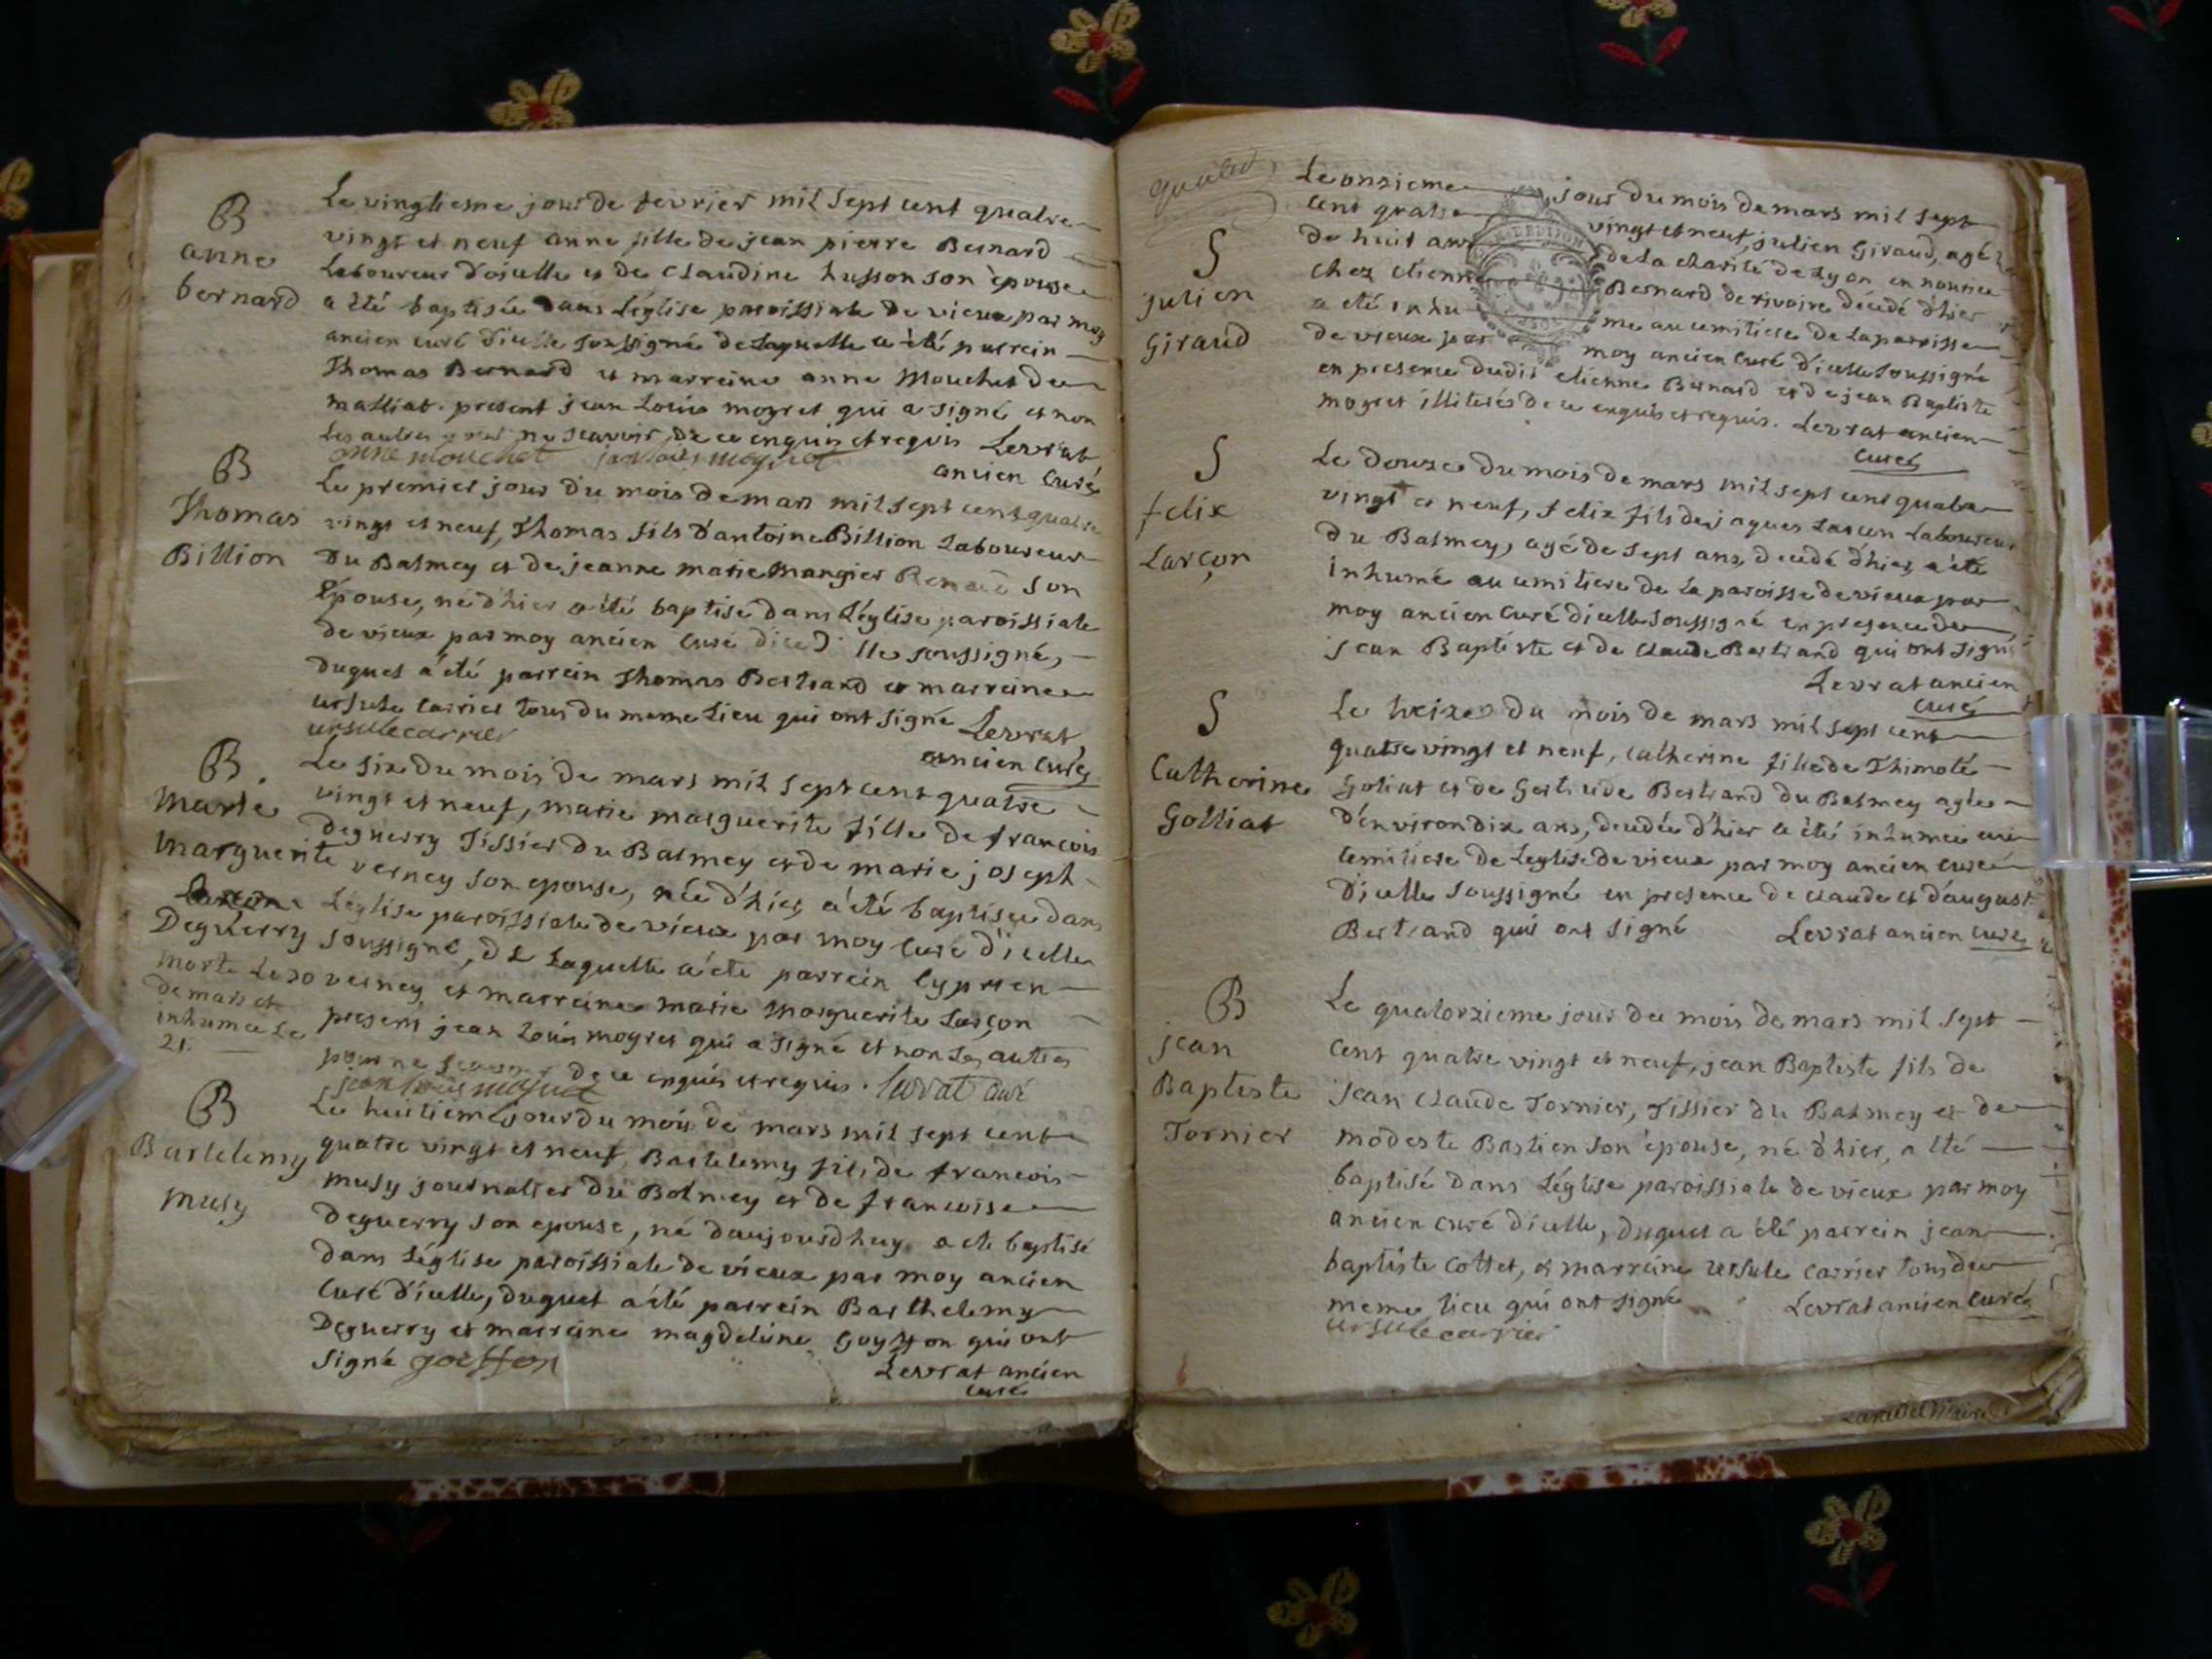 B
anne
bernard
Le vingtieme jour de fevrier mil sept cent quatre
vingt et neuf anne fille de jean pierre Bernard
Laboureur d'oielle et de Claudine husson son épouse
a été baptisée dans L'église paroissiale de vieux par moy
ancien curé d'icelle soussigné de Laquelle a été parrein
Thomas Bernard et marreine anne Mouchet de
malliat. present jean Louis moyret qui a signé et non
Les autres pour ne scavoir de ce enquis et requis Levrat
anne mouchet jan louis moyret ancien Curé
B
Thomas
Billion
Le premier jour du mois de mars mil sept cent quatre
vingt et neuf, Thomas fils d'antoine Billion Laboureur
Du Balmey et de jeanne marie Mangier Renaud son
Epouse, né d'hier a été baptisé dans L'église paroissiale
de vieux par moy ancien Curé d'icelle soussigné,
duquel a été parrein Thomas Bertrand et marreine
ursule Carrier tous du meme Lieu qui ont signé Levrat
ursule carrier ancien Curé
B.
Marie
Marguerite
Deguerry
morte Le 20
de mars et
inhumée Le
21.
Le six du mois de mars mil sept cent quatre
vingt et neuf, marie marguerite fille de francois
Deguerry Tissier du Balmey et de marie joseph
verney son epouse, née d'hier, a été baptisée dans
L'église paroissiale de vieux par moy Curé d'icelle
soussigné, de Laquelle a été parrein Cyprien
verney et marreine marie Marguerite Larçon
present jean Louis moyret qui a signé et non Les autres
pour ne scavoir de ce enquis et requis. Levrat curé
jean louis moyret
B
Bartelemy
Musy
Le huitieme jour du mois de mars mil sept cent
quatre vingt et neuf Bartelemy fils de francois
musy journalier du Bolmey et de francoise
Deguerry son epouse, né d'aujourdhuy a été baptisé
dans L'église paroissiale de vieux par moy ancien
Curé d'icelle, duquel a été parrein Barthelemy
Deguerry et marreine magdeleine Goyffon qui ont
signé goiffon Levrat ancien
curé
S
julien
Giraud
Le onzieme jour du mois de mars mil sept
cent quatre vingt et neuf, julien Giraud, agé
de huit ans de La charité de Lyon en nourice
Chez etienne Bernard de rivoire décédé d'hier
a été inhumé au cemitiere de La paroisse
de vieux par moy ancien Curé d'icelle soussigné
en presence dudit etienne Bernard et de jean Baptiste
moyret illiterés de ce enquis et requis. Levrat ancien
Curé
S
felix
Larçon
Le douze du mois de mars mil sept cent quatre
vingt et neuf, felix fils de jaques Larçon Laboureur
du Balmey, agé de sept ans, decedé d'hier, a été
inhumé au cemitiere de La paroisse de vieux par
moy ancien Curé d'icelle soussigné en presence de
jean Baptiste et de Claude Bertrand qui ont signé
Levrat ancien
curé
S
Catherine
Golliat
Le treize du mois de mars mil sept cent
quatre vingt et neuf, catherine fille de Thimoté
Goliat et de Gertrude Bertrand du Balmey agée
d'environ dix ans, decedée d'hier a été inhumée au
cemitiere de Leglise de vieux par moy ancien curé
d'icelle soussigné en presence de Claude et d'august
Bertrand qui ont signé Levrat ancien curé
B
jean
Baptiste
Tornier
Le quatorzieme jour du mois de mars mil sept
cent quatre vingt et neuf, jean Baptiste fils de
jean Claude Tornier, Tissier du Balmey et de
modeste Bastien son épouse, né d'hier, a été
baptisé dans L'église paroissiale de vieux par moy
ancien curé d'icelle, duquel a été parrein jean
baptiste Cottet, et marreine ursule carrier tous du
meme lieu qui ont signé Levrat ancien Curé
ursule carrier